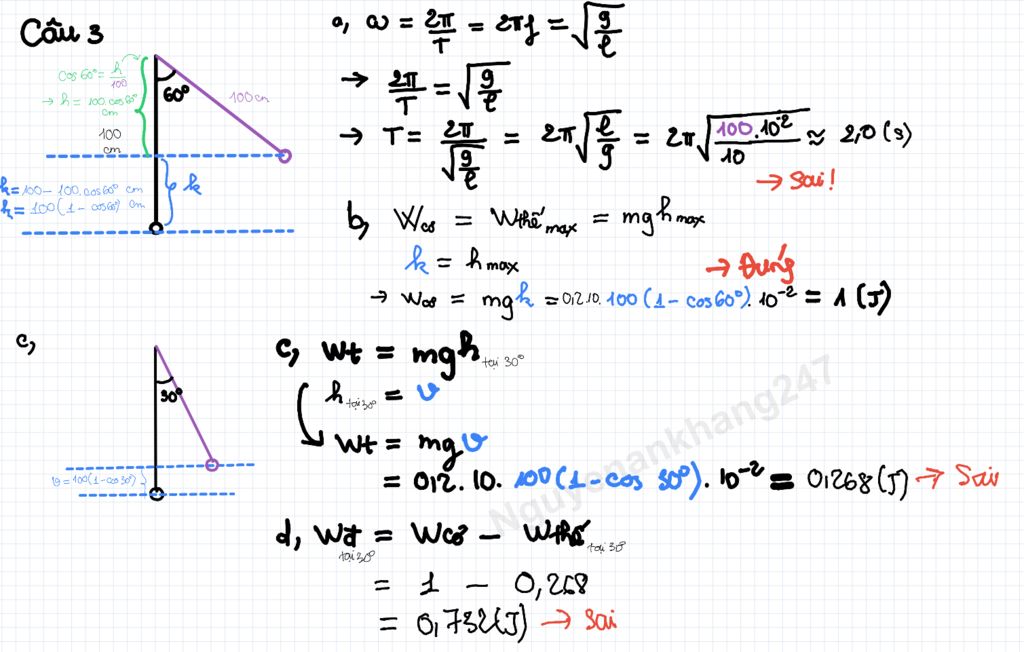 Câu 3
cos 60° = h/100
→ h = 100.cos60° cm
100 cm
60°
100 cm
k = 100 - 100.cos60° cm
k = 100(1 - cos60°) cm
k
a, ω = 2π/T = 2πf = √(g/l)
→ 2π/T = √(g/l)
→ T = 2π/√(g/l) = 2π√(l/g) = 2π√(100.10⁻²/10) ≈ 2,0 (s)
→ Sai!
b, Wcơ = Wthế max = mghmax
k = hmax
→ Đúng
→ Wcơ = mgk = 0,2.10.100(1 - cos60°).10⁻² = 1 (J)
c,
30°
v = 100(1-cos30°)
c, Wt = mgh tại 30°
h tại 30° = v
Wt = mgv
= 0,2.10.100(1-cos 30°).10⁻² = 0,268(J) → Sai
d, Wđ tại 30° = Wcơ - Wthế tại 30°
= 1 - 0,268
= 0,732(J) → Sai
Nguyenankhang247